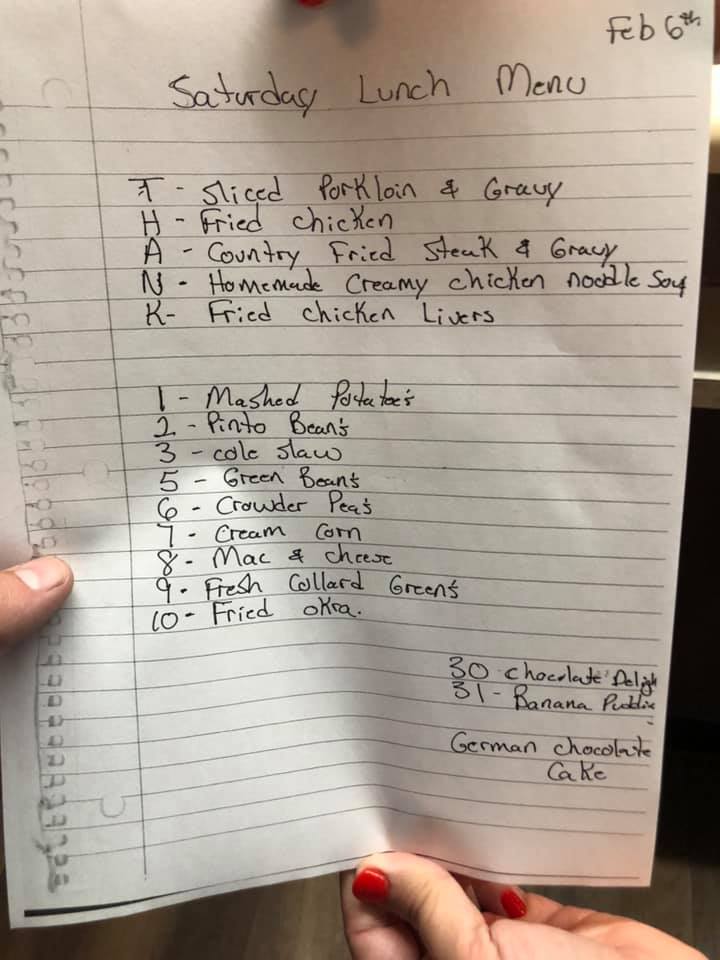 Feb 6th
Saturday Lunch Menu
T - Sliced Porkloin & Gravy
H - Fried chicken
A - Country Fried Steak & Gravy
N - Homemade Creamy chicken noodle Soup
K- Fried chicken Livers
1 - Mashed Potatoe's
2 - Pinto Bean's
3 - cole slaw
5 - Green Bean's
6 - Crowder Pea's
7 - Cream Corn
8 - Mac & cheese
9 - Fresh Collard Green's
10 - Fried okra.
30 chocolate Deligh
31 - Banana Puddin
German chocolate
Cake